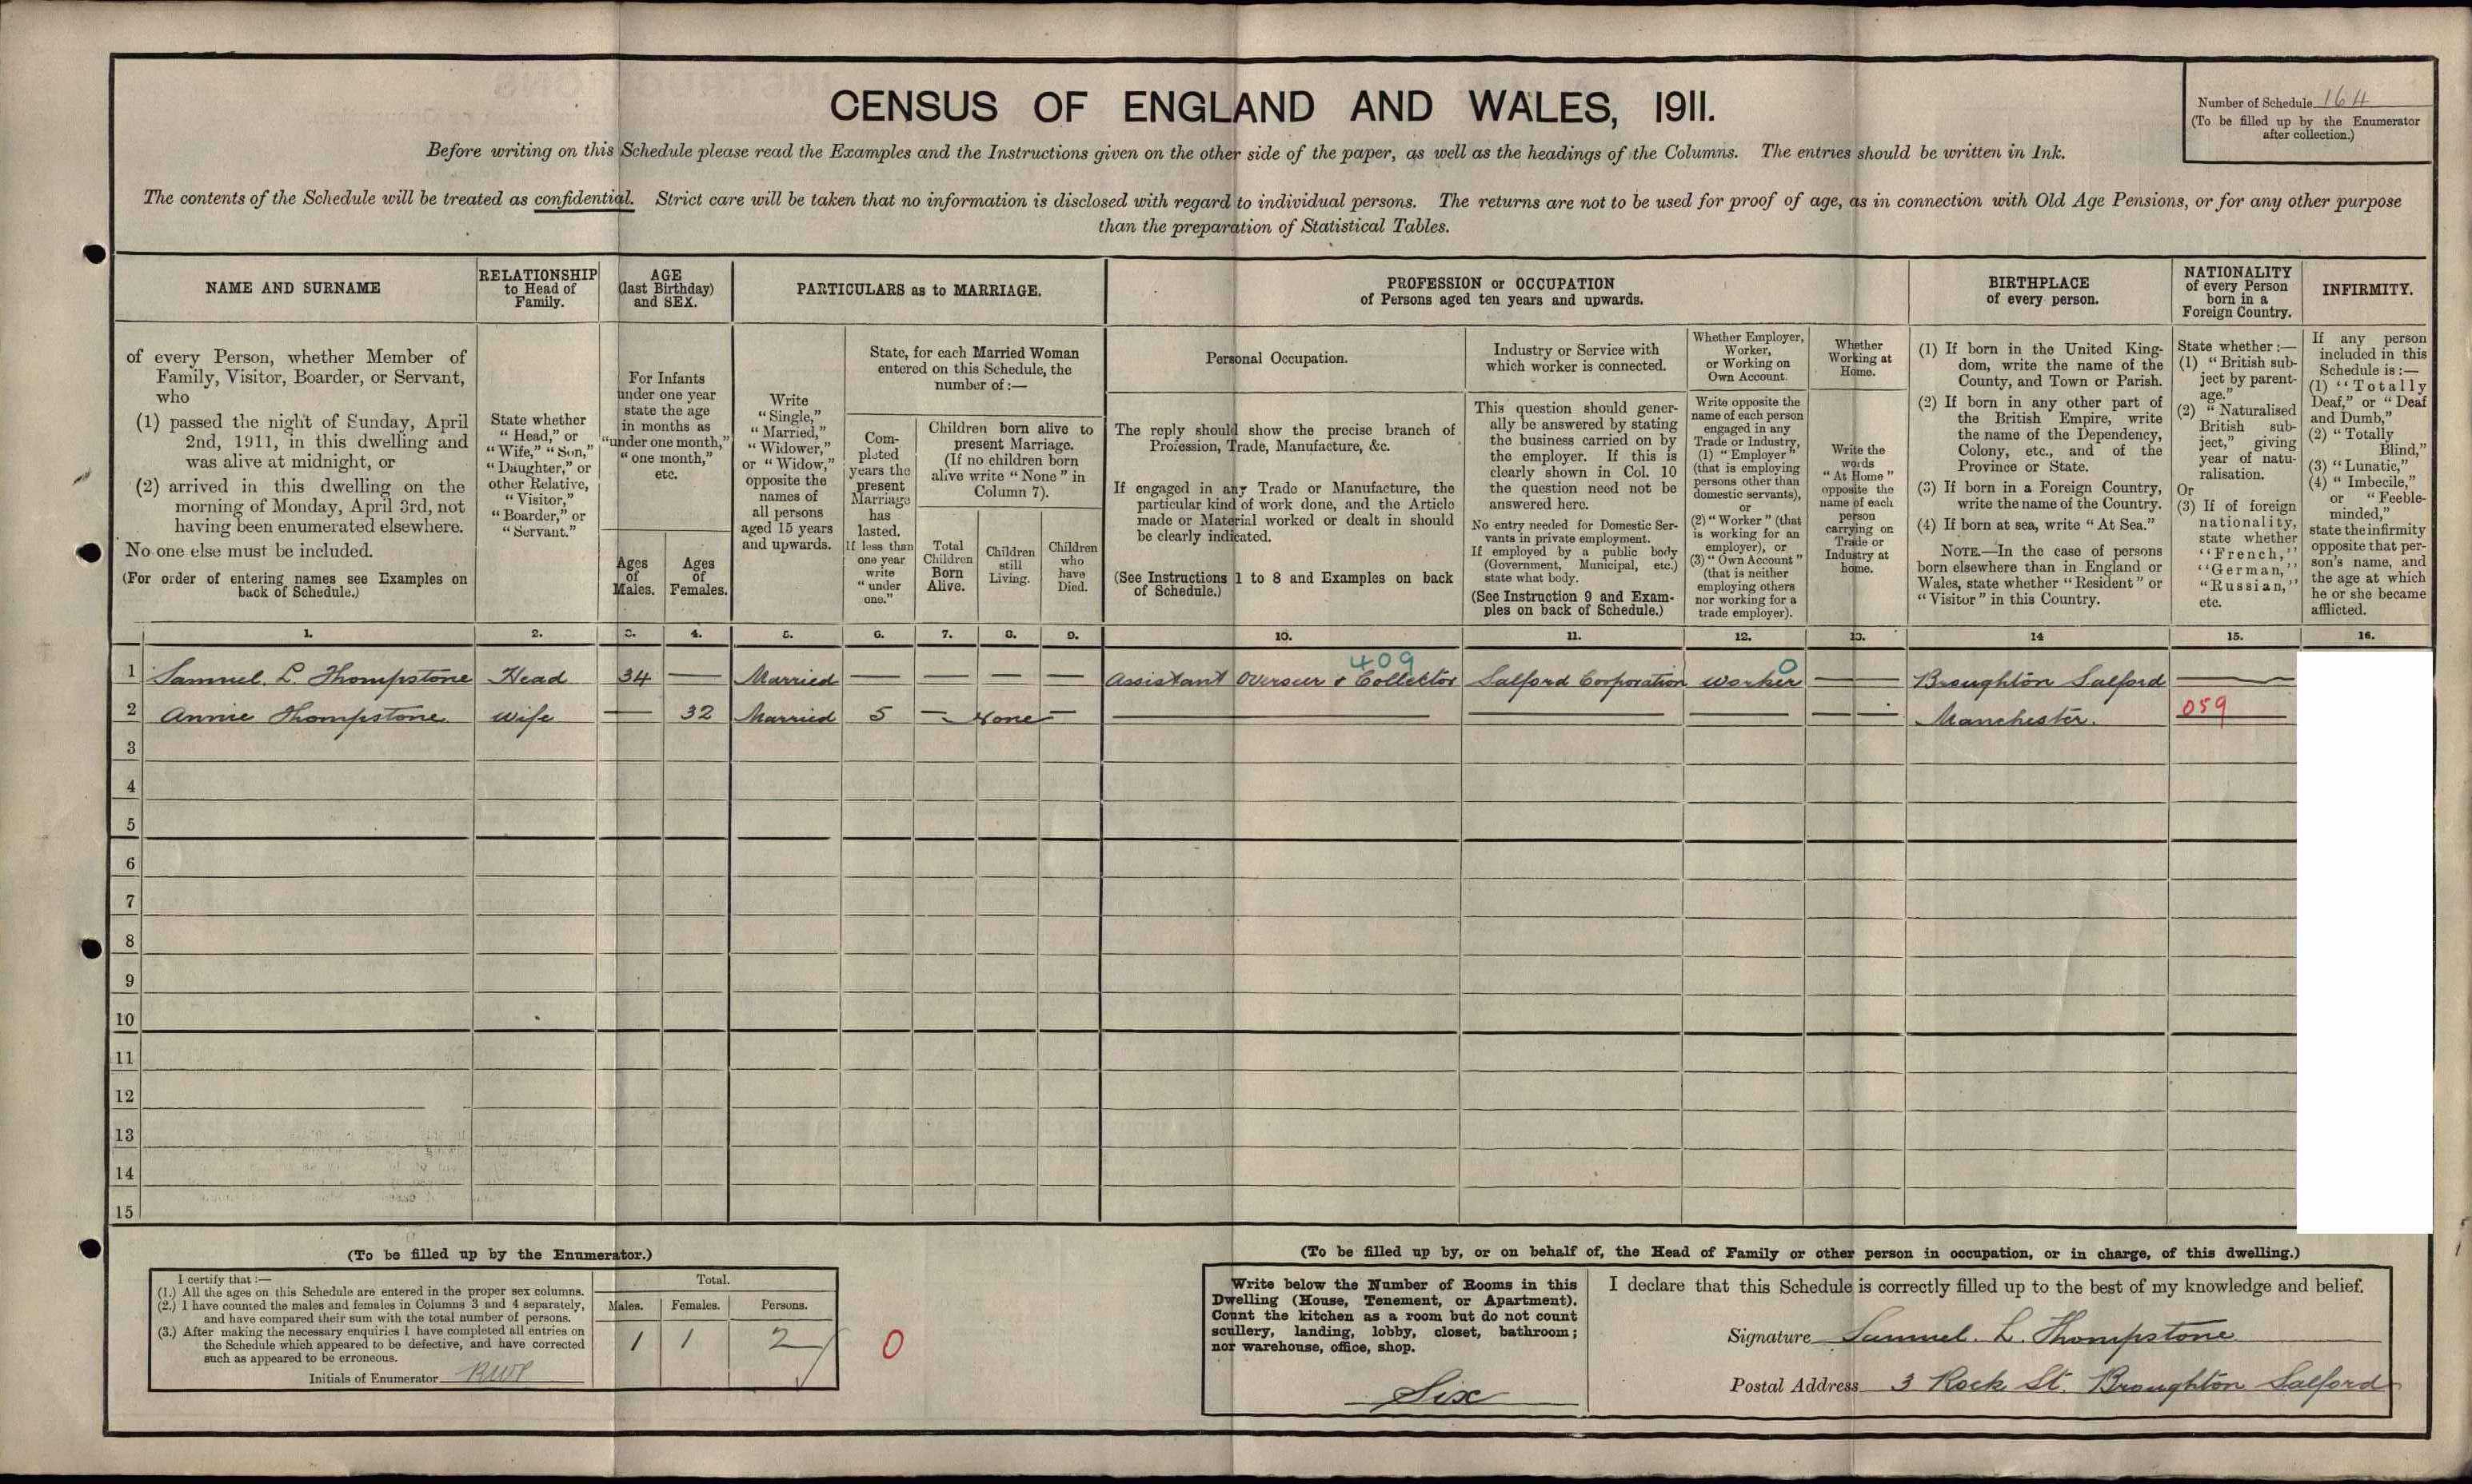 CENSUS OF ENGLAND AND WALES, 1911.
Number of Schedule 164
(To be filled up by the Enumerator
after collection.)
Before writing on this Schedule please read the Examples and the Instructions given on the other side of the paper, as well as the headings of the Columns. The entries should be written in Ink.
The contents of the Schedule will be treated as confidential. Strict care will be taken that no information is disclosed with regard to individual persons. The returns are not to be used for proof of age, as in connection with Old Age Pensions, or for any other purpose
than the preparation of Statistical Tables.
NAME AND SURNAME
of every Person, whether Member of
Family, Visitor, Boarder, or Servant,
who
(1) passed the night of Sunday, April
2nd, 1911, in this dwelling and
was alive at midnight, or
(2) arrived in this dwelling on the
morning of Monday, April 3rd, not
having been enumerated elsewhere.
No one else must be included.
(For order of entering names see Examples on
back of Schedule.)
RELATIONSHIP
to Head of
Family.
State whether
"Head," or
"Wife," "Son,"
"Daughter," or
other Relative,
"Visitor,"
"Boarder," or
"Servant."
AGE
(last Birthday)
and SEX.
For Infants
under one year
state the age
in months as
"under one month,"
"one month,"
etc.
Ages
of
Males.
Ages
of
Females.
PARTICULARS as to MARRIAGE.
Write
"Single,"
"Married,"
"Widower,"
or "Widow,"
opposite the
names of
all persons
aged 15 years
and upwards.
State, for each Married Woman
entered on this Schedule, the
number of :—
Com-
pleted
years the
present
Marriage
has
lasted.
If less than
one year
write
"under
one."
Children born alive to
present Marriage.
(If no children born
alive write "None" in
Column 7).
Total
Children
Born
Alive.
Children
still
Living.
Children
who
have
Died.
PROFESSION or OCCUPATION
of Persons aged ten years and upwards.
Personal Occupation.
The reply should show the precise branch of
Profession, Trade, Manufacture, &c.
If engaged in any Trade or Manufacture, the
particular kind of work done, and the Article
made or Material worked or dealt in should
be clearly indicated.
(See Instructions 1 to 8 and Examples on back
of Schedule.)
Industry or Service with
which worker is connected.
This question should gener-
ally be answered by stating
the business carried on by
the employer. If this is
clearly shown in Col. 10
the question need not be
answered here.
No entry needed for Domestic Ser-
vants in private employment.
If employed by a public body
(Government, Municipal, etc.)
state what body.
(See Instruction 9 and Exam-
ples on back of Schedule.)
Whether Employer,
Worker,
or Working on
Own Account.
Write opposite the
name of each person
engaged in any
Trade or Industry,
(1) "Employer"
(that is employing
persons other than
domestic servants),
or
(2) "Worker" (that
is working for an
employer), or
(3) "Own Account"
(that is neither
employing others
nor working for a
trade employer).
Whether
Working at
Home.
Write the
words
"At Home"
opposite the
name of each
person
carrying on
Trade or
Industry at
home.
BIRTHPLACE
of every person.
(1) If born in the United King-
dom, write the name of the
County, and Town or Parish.
(2) If born in any other part of
the British Empire, write
the name of the Dependency,
Colony, etc., and of the
Province or State.
(3) If born in a Foreign Country,
write the name of the Country.
(4) If born at sea, write "At Sea."
NOTE.—In the case of persons
born elsewhere than in England or
Wales, state whether "Resident" or
"Visitor" in this Country.
NATIONALITY
of every Person
born in a
Foreign Country.
State whether :—
(1) "British sub-
ject by parent-
age."
(2) "Naturalised
British sub-
ject," giving
year of natu-
ralisation.
Or
(3) If of foreign
nationality,
state whether
"French,"
"German,"
"Russian,"
etc.
INFIRMITY.
If any person
included in this
Schedule is :—
(1) "Totally
Deaf," or "Deaf
and Dumb,"
(2) "Totally
Blind,"
(3) "Lunatic,"
(4) "Imbecile,"
or "Feeble-
minded,"
state the infirmity
opposite that per-
son's name, and
the age at which
he or she became
afflicted.
1. 2. 3. 4. 5. 6. 7. 8. 9. 10. 11. 12. 13. 14 15. 16.
409 0
1 Samuel. L. Thompstone Head 34 — Married — — — — Assistant Overseer & Collector Salford Corporation Worker — Broughton Salford —
2 Annie Thompstone. Wife — 32 Married 5 — None — — — — — Manchester. 059
3
4
5
6
7
8
9
10
11
12
13
14
15
(To be filled up by the Enumerator.)
I certify that :—
(1.) All the ages on this Schedule are entered in the proper sex columns.
(2.) I have counted the males and females in Columns 3 and 4 separately,
and have compared their sum with the total number of persons.
(3.) After making the necessary enquiries I have completed all entries on
the Schedule which appeared to be defective, and have corrected
such as appeared to be erroneous.
Initials of Enumerator
Total.
Males. Females. Persons.
1 1 2
0
(To be filled up by, or on behalf of, the Head of Family or other person in occupation, or in charge, of this dwelling.)
Write below the Number of Rooms in this
Dwelling (House, Tenement, or Apartment).
Count the kitchen as a room but do not count
scullery, landing, lobby, closet, bathroom;
nor warehouse, office, shop.
Six
I declare that this Schedule is correctly filled up to the best of my knowledge and belief.
Signature Samuel. L. Thompstone
Postal Address 3 Rock St. Broughton Salford